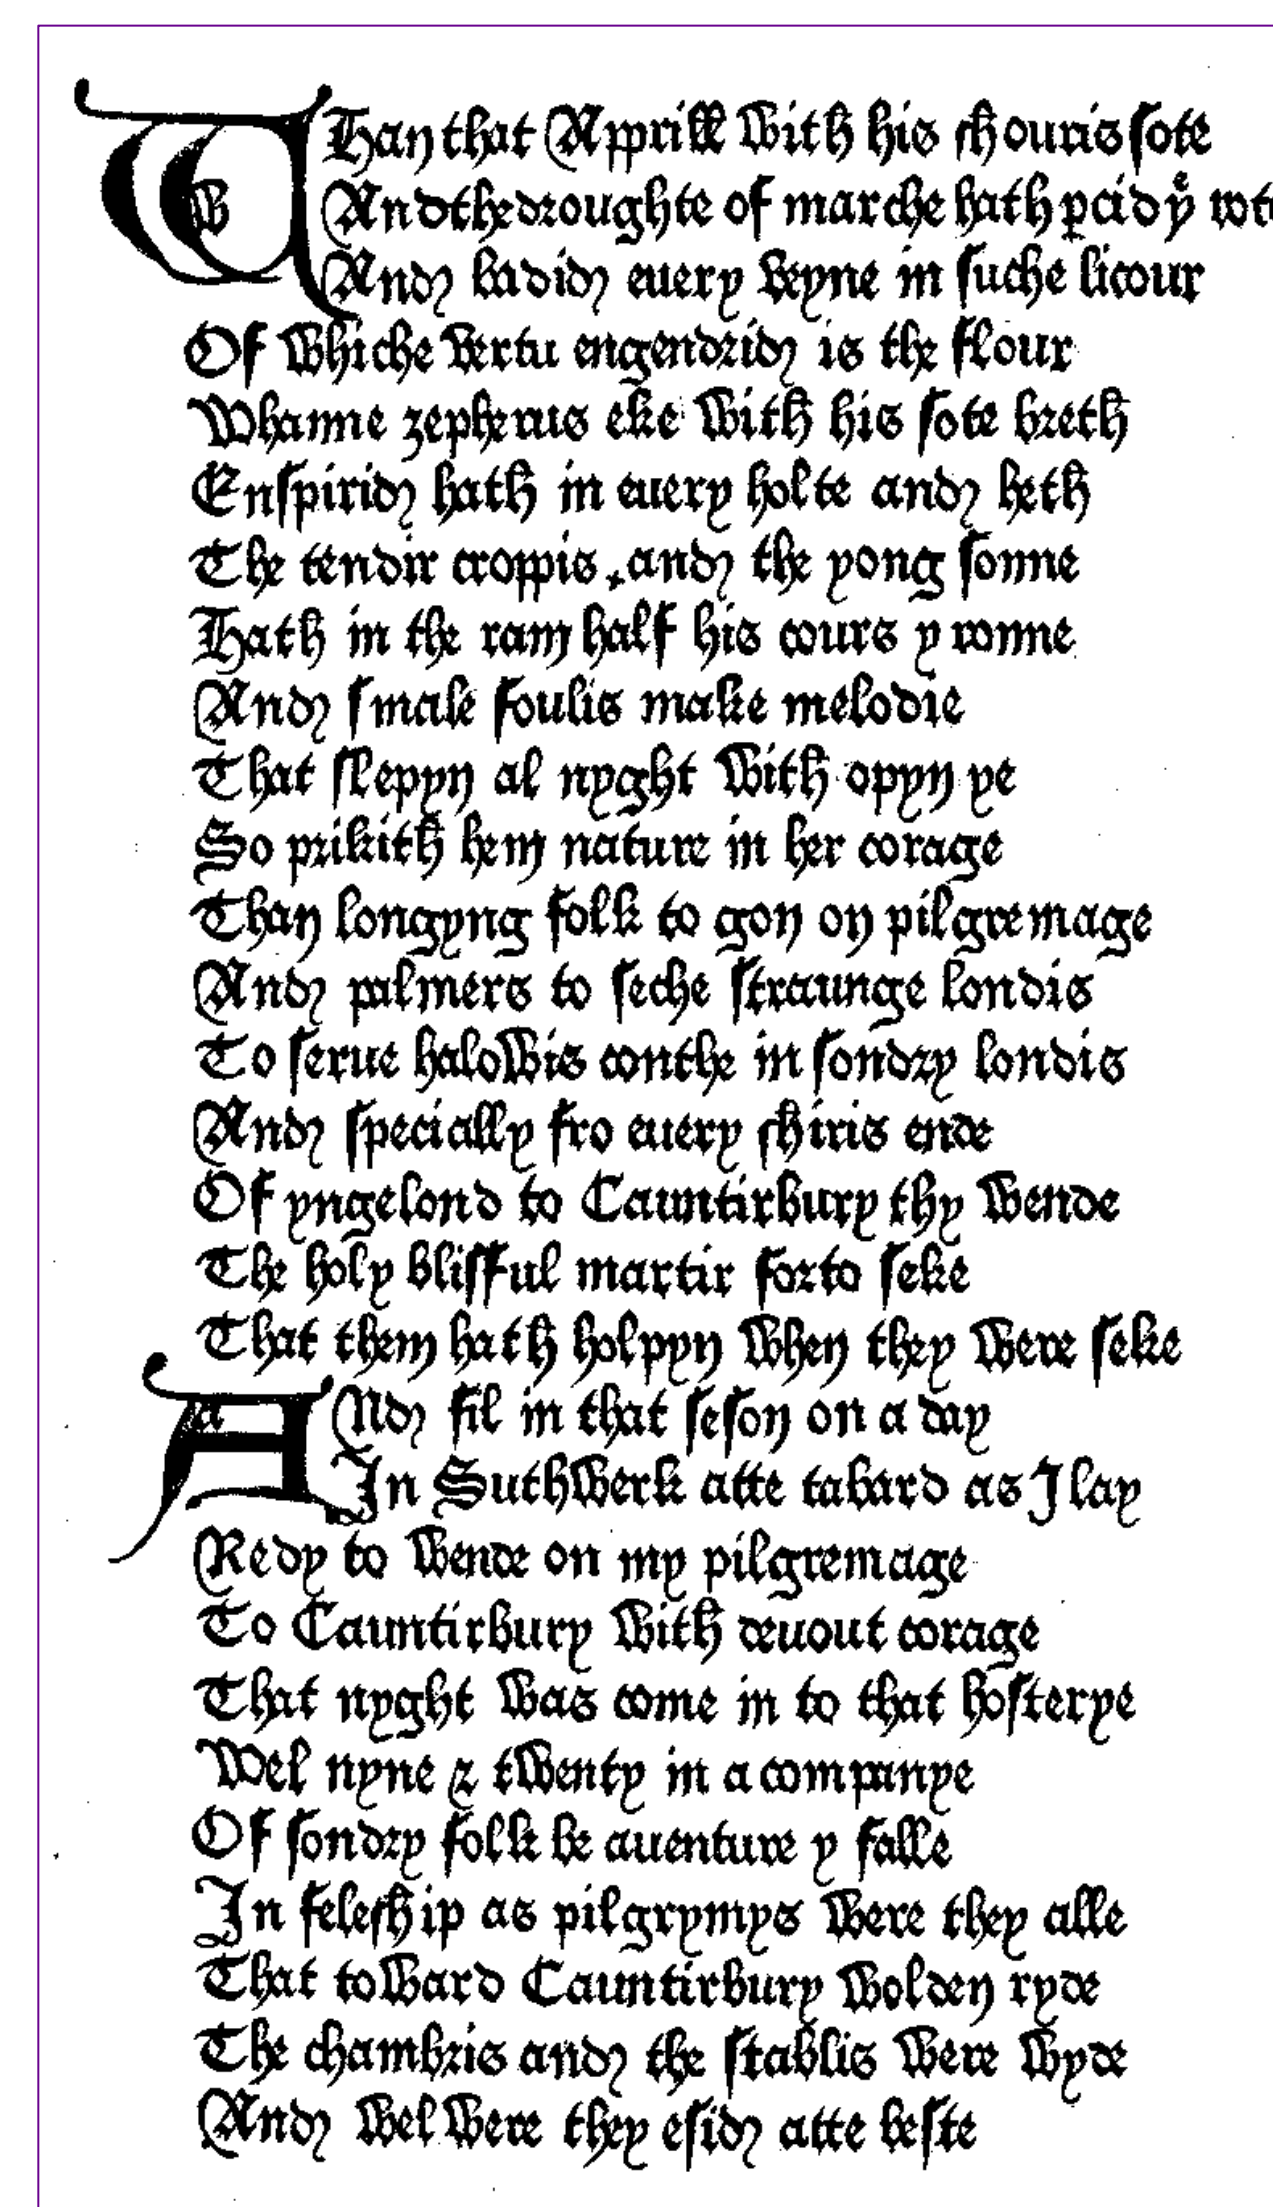 WHan that Apprill with his shouris sote
And the droughte of marche hath ꝑcid yͤ rote
And badid euery veyne in suche licour
Of whiche vertu engendrid is the flour
Whanne zepherus eke with his sote breth
Enspirid hath in euery holte and heth
The tendir croppis, and the yong sonne
Hath in the ram half his cours y ronne
And smale foulis make melodie
That slepyn al nyght with opyn ye
So prikith hem nature in her corage
Than longyng folk to gon on pilgremage
And palmers to seche straunge londis
To serue halowis couthe in sondry londis
And specially fro euery shiris ende
Of yngelond to Cauntirbury thy wende
The holy blisful martir forto seke
That them hath holpyn when they were seke
ANd fil in that seson on a day
In Suthwerk atte tabard as I lay
Redy to wende on my pilgremage
To Cauntirbury with deuout corage
That nyght was come in to that hosterye
Wel nyne & twenty in a companye
Of sondry folk be auenture y falle
In feleship as pilgrymys were they alle
That toward Cauntirbury wolden ryde
The chambris and the stablis were wyde
And wel were they esid atte beste